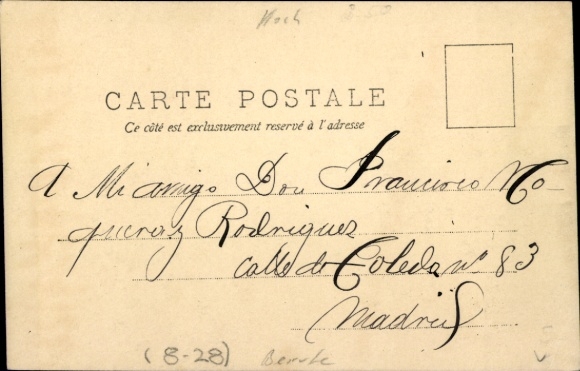 3.50
CARTE POSTALE
Ce côté est exclusivement reservé à l'adresse
A Mi amigo Don Francisco No-
queray Rodriguez
calle de Toledo nº 83
Madrid
(8-28)